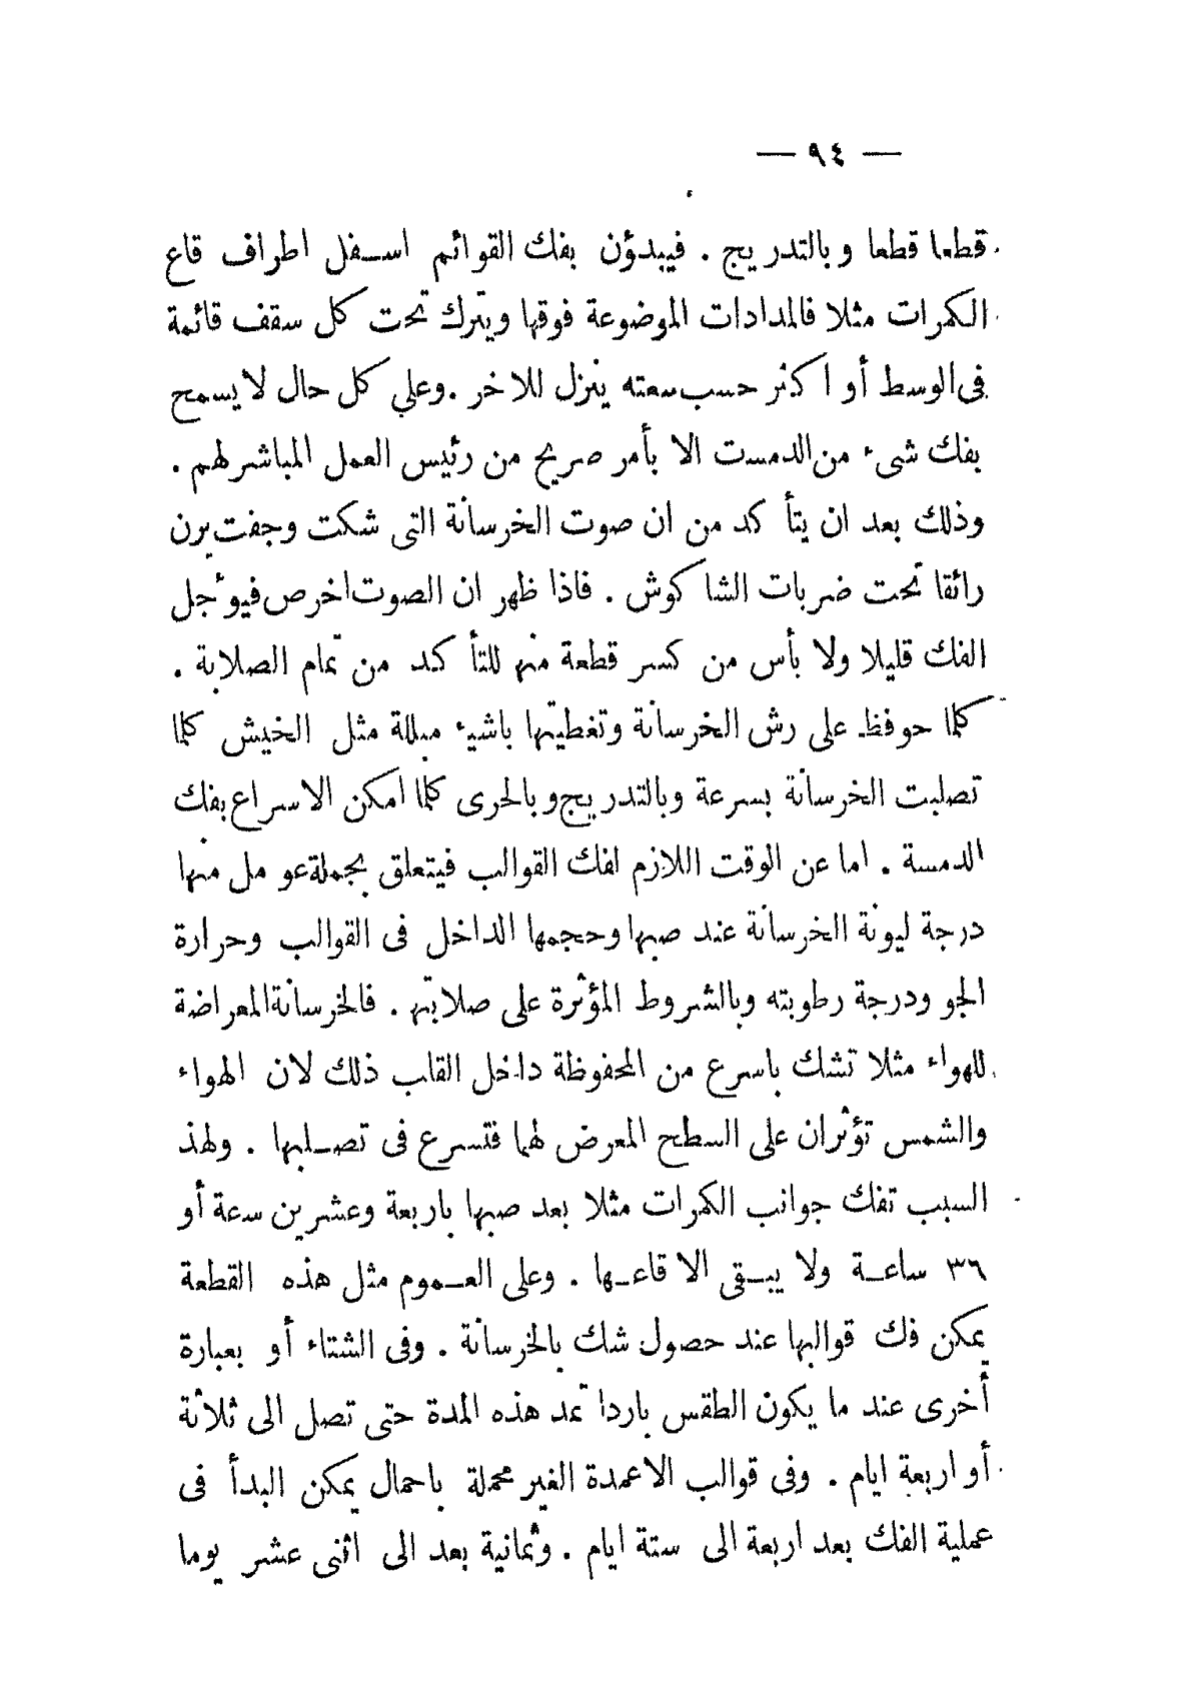 — ٩٤ —
قطعا قطعا وبالتدريج . فيبدؤن بفك القوائم اسفل اطراف قاع
الكمرات مثلا فالمدادات الموضوعة فوقها ويترك تحت كل سقف قائمة
فى الوسط أو اكثر حسب سعته ينزل للاخر . وعلي كل حال لا يسمح
بفك شىء من الدمست الا بأمر صريح من رئيس العمل المباشر لهم .
وذلك بعد ان يتأكد من ان صوت الخرسانة التى شكت وجفت يرن
رائقا تحت ضربات الشاكوش . فاذا ظهر ان الصوت اخرص فيؤجل
الفك قليلا ولا بأس من كسر قطعة منها للتأكد من تمام الصلابة .
كلما حوفظ على رش الخرسانة وتغطيتها باشيء مبللة مثل الخيش كلما
تصلبت الخرسانة بسرعة وبالتدريج وبالحرى كلما امكن الاسراع بفك
الدمسة . اما عن الوقت اللازم لفك القوالب فيتعلق بجملة عومل منها
درجة ليونة الخرسانة عند صبها وحجمها الداخل فى القوالب وحرارة
الجو ودرجة رطوبته وبالشروط المؤثرة على صلابتها . فالخرسانة المعراضة
للهواء مثلا تشك باسرع من المحفوظة داخل القاب ذلك لان الهواء
والشمس تؤثران على السطح المعرض لهما فتسرع فى تصلبها . ولهذ
السبب تفك جوانب الكمرات مثلا بعد صبها باربعة وعشرين سعة أو
٣٦ ساعة ولا يبقى الا قاعها . وعلى العموم مثل هذه القطعة
يمكن فك قوالبها عند حصول شك بالخرسانة . وفى الشتاء أو بعبارة
أخرى عند ما يكون الطقس باردا تمد هذه المدة حتى تصل الى ثلاثة
أو اربعة ايام . وفى قوالب الاعمدة الغير محملة باحمال يمكن البدأ فى
عملية الفك بعد اربعة الى ستة ايام . وثمانية بعد الى اثنى عشر يوما